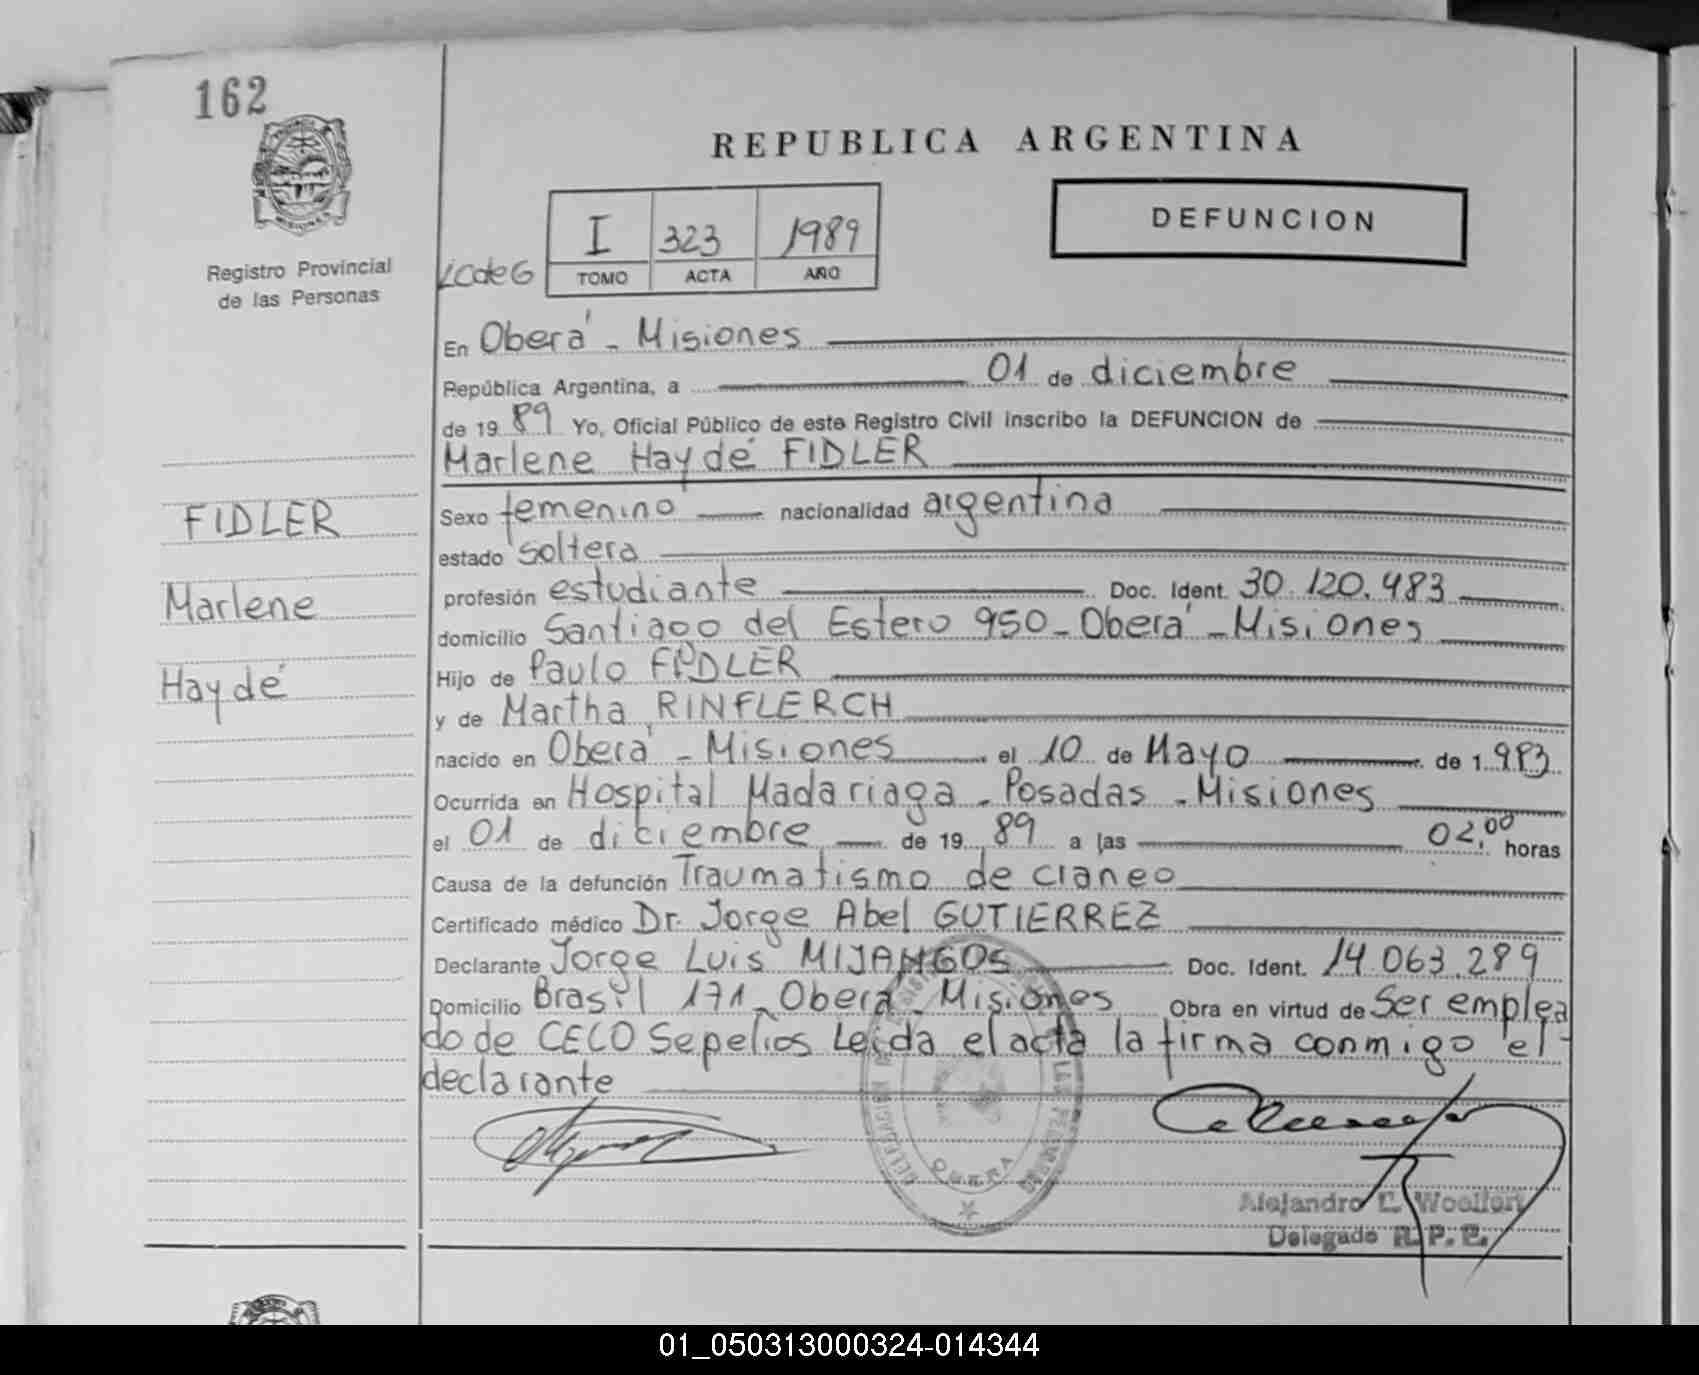 162
REPUBLICA ARGENTINA
I 323 1989
TOMO ACTA AÑO
DEFUNCION
Registro Provincial
de las Personas
En Oberá - Misiones
República Argentina, a 01 de diciembre
de 1989 Yo, Oficial Público de este Registro Civil inscribo la DEFUNCION de
Marlene Haydé FIDLER
FIDLER
Marlene
Haydé
Sexo femenino nacionalidad argentina
estado soltera
profesión estudiante Doc. Ident. 30.120.483
domicilio Santiago del Estero 950 - Oberá - Misiones
Hijo de Paulo FIDLER
y de Martha RINFLERCH
nacido en Oberá - Misiones el 10 de Mayo de 1.983
Ocurrida en Hospital Madariaga - Posadas - Misiones
el 01 de diciembre de 1989 a las 02,00 horas
Causa de la defunción Traumatismo de craneo
Certificado médico Dr. Jorge Abel GUTIERREZ
Declarante Jorge Luis MIJANGOS Doc. Ident. 14.063.289
Domicilio Brasil 171 - Oberá - Misiones Obra en virtud de Ser emplea
do de CECO Sepelios Leída el acta la firma conmigo el
declarante
OBERA
Alejandro
Delegado R. P. P.
01_050313000324-014344